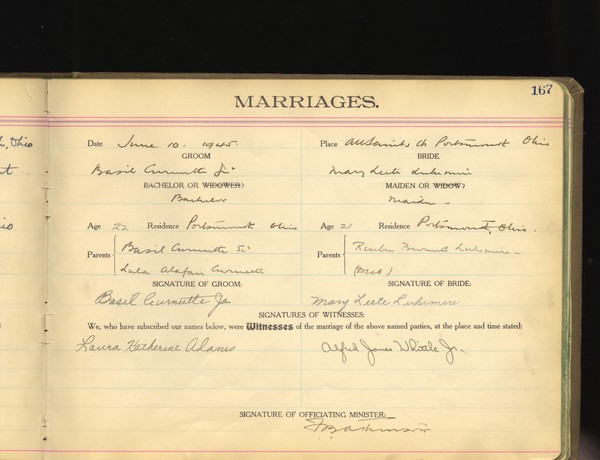 167
MARRIAGES.
Ohio
Date June 10. 1945. Place All Saints Ch Portsmouth Ohio
GROOM BRIDE
Basil Curnutte Jr Mary Leete
BACHELOR OR WIDOWER? MAIDEN OR WIDOW?
Bachelor Maiden
Age 22 Residence Portsmouth Ohio Age 21 Residence Portsmouth, Ohio.
Parents Basil Curnutte Sr Parents
Lula Curnutte
SIGNATURE OF GROOM: SIGNATURE OF BRIDE:
Basel Curnutte Jr Mary Leete
SIGNATURES OF WITNESSES:
We, who have subscribed our names below, were Witnesses of the marriage of the above named parties, at the place and time stated:
Laura Katherine Adams Alfred James Whittle Jr.
SIGNATURE OF OFFICIATING MINISTER: